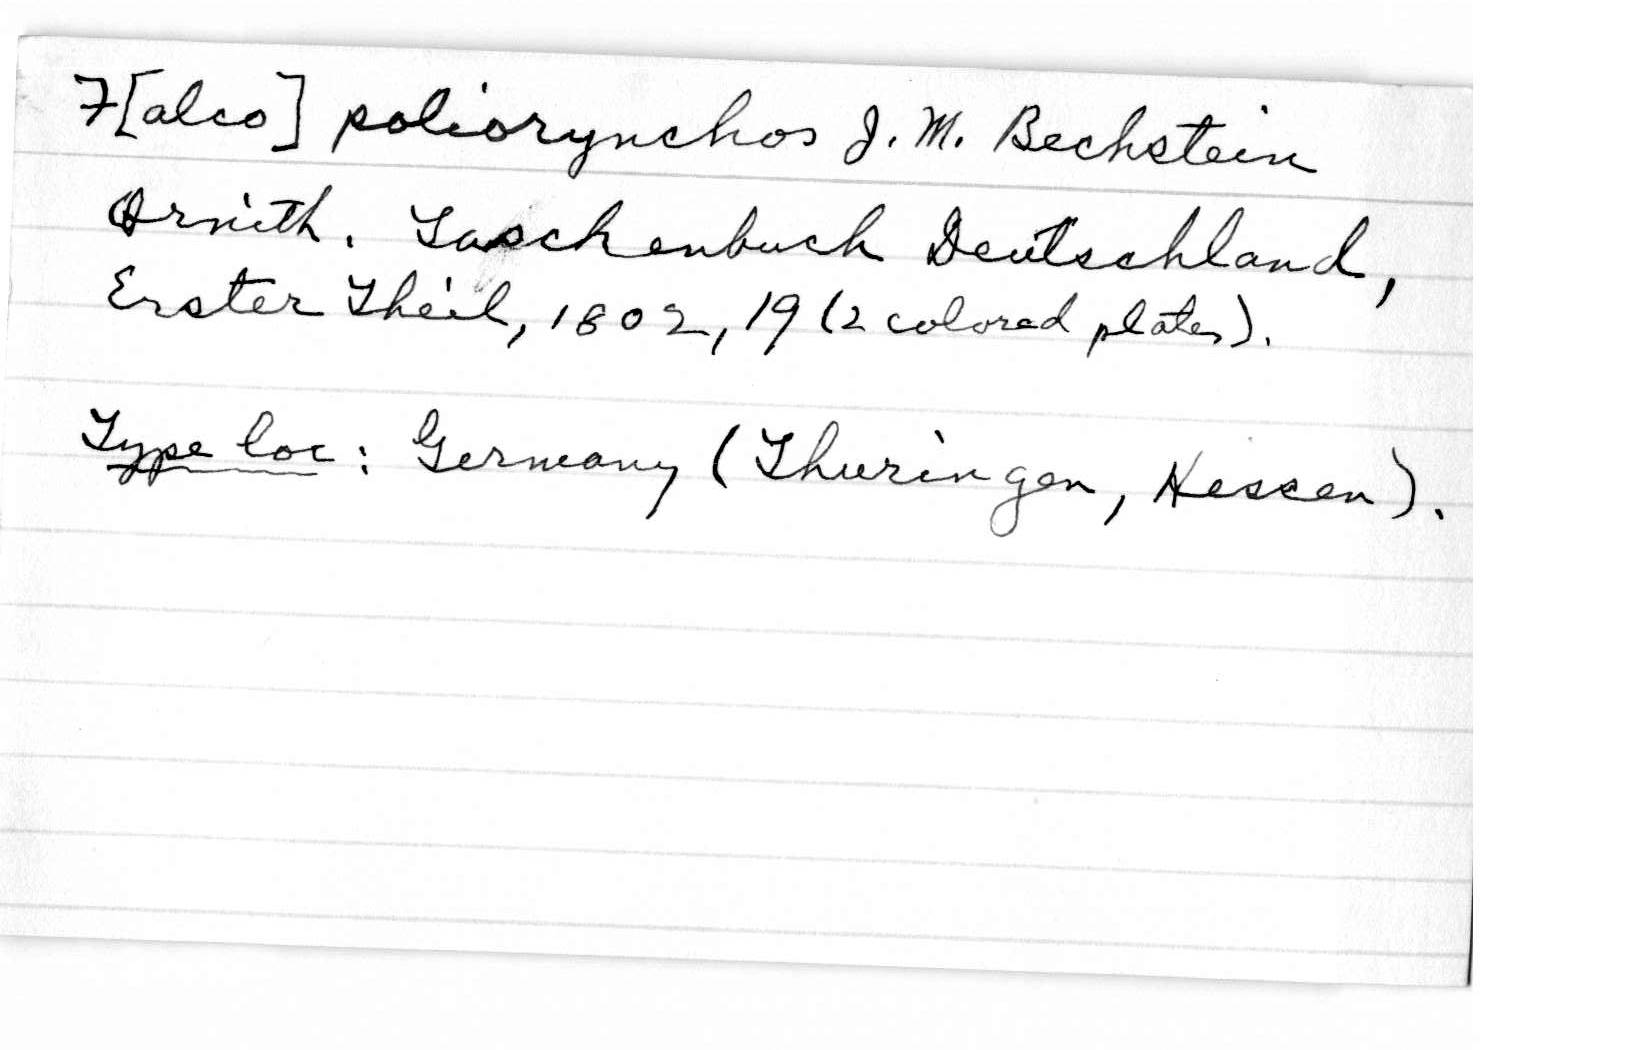 F[alco] poliorynchos J. M. Bechstein
Ornith. Taschenbuch Deutschland,
Erster Theil, 1802, 19 (2 colored plates).
Type loc: Germany (Thuringen, Hessen).